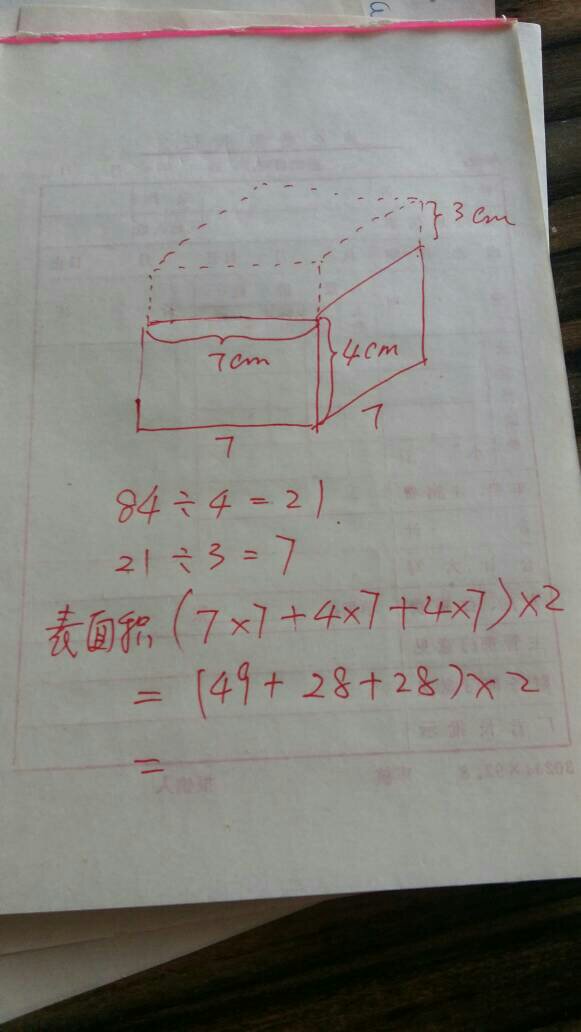 3cm
7cm
4cm
7
7
84÷4=21
21÷3=7
表面积(7×7+4×7+4×7)×2
=(49+28+28)×2
=